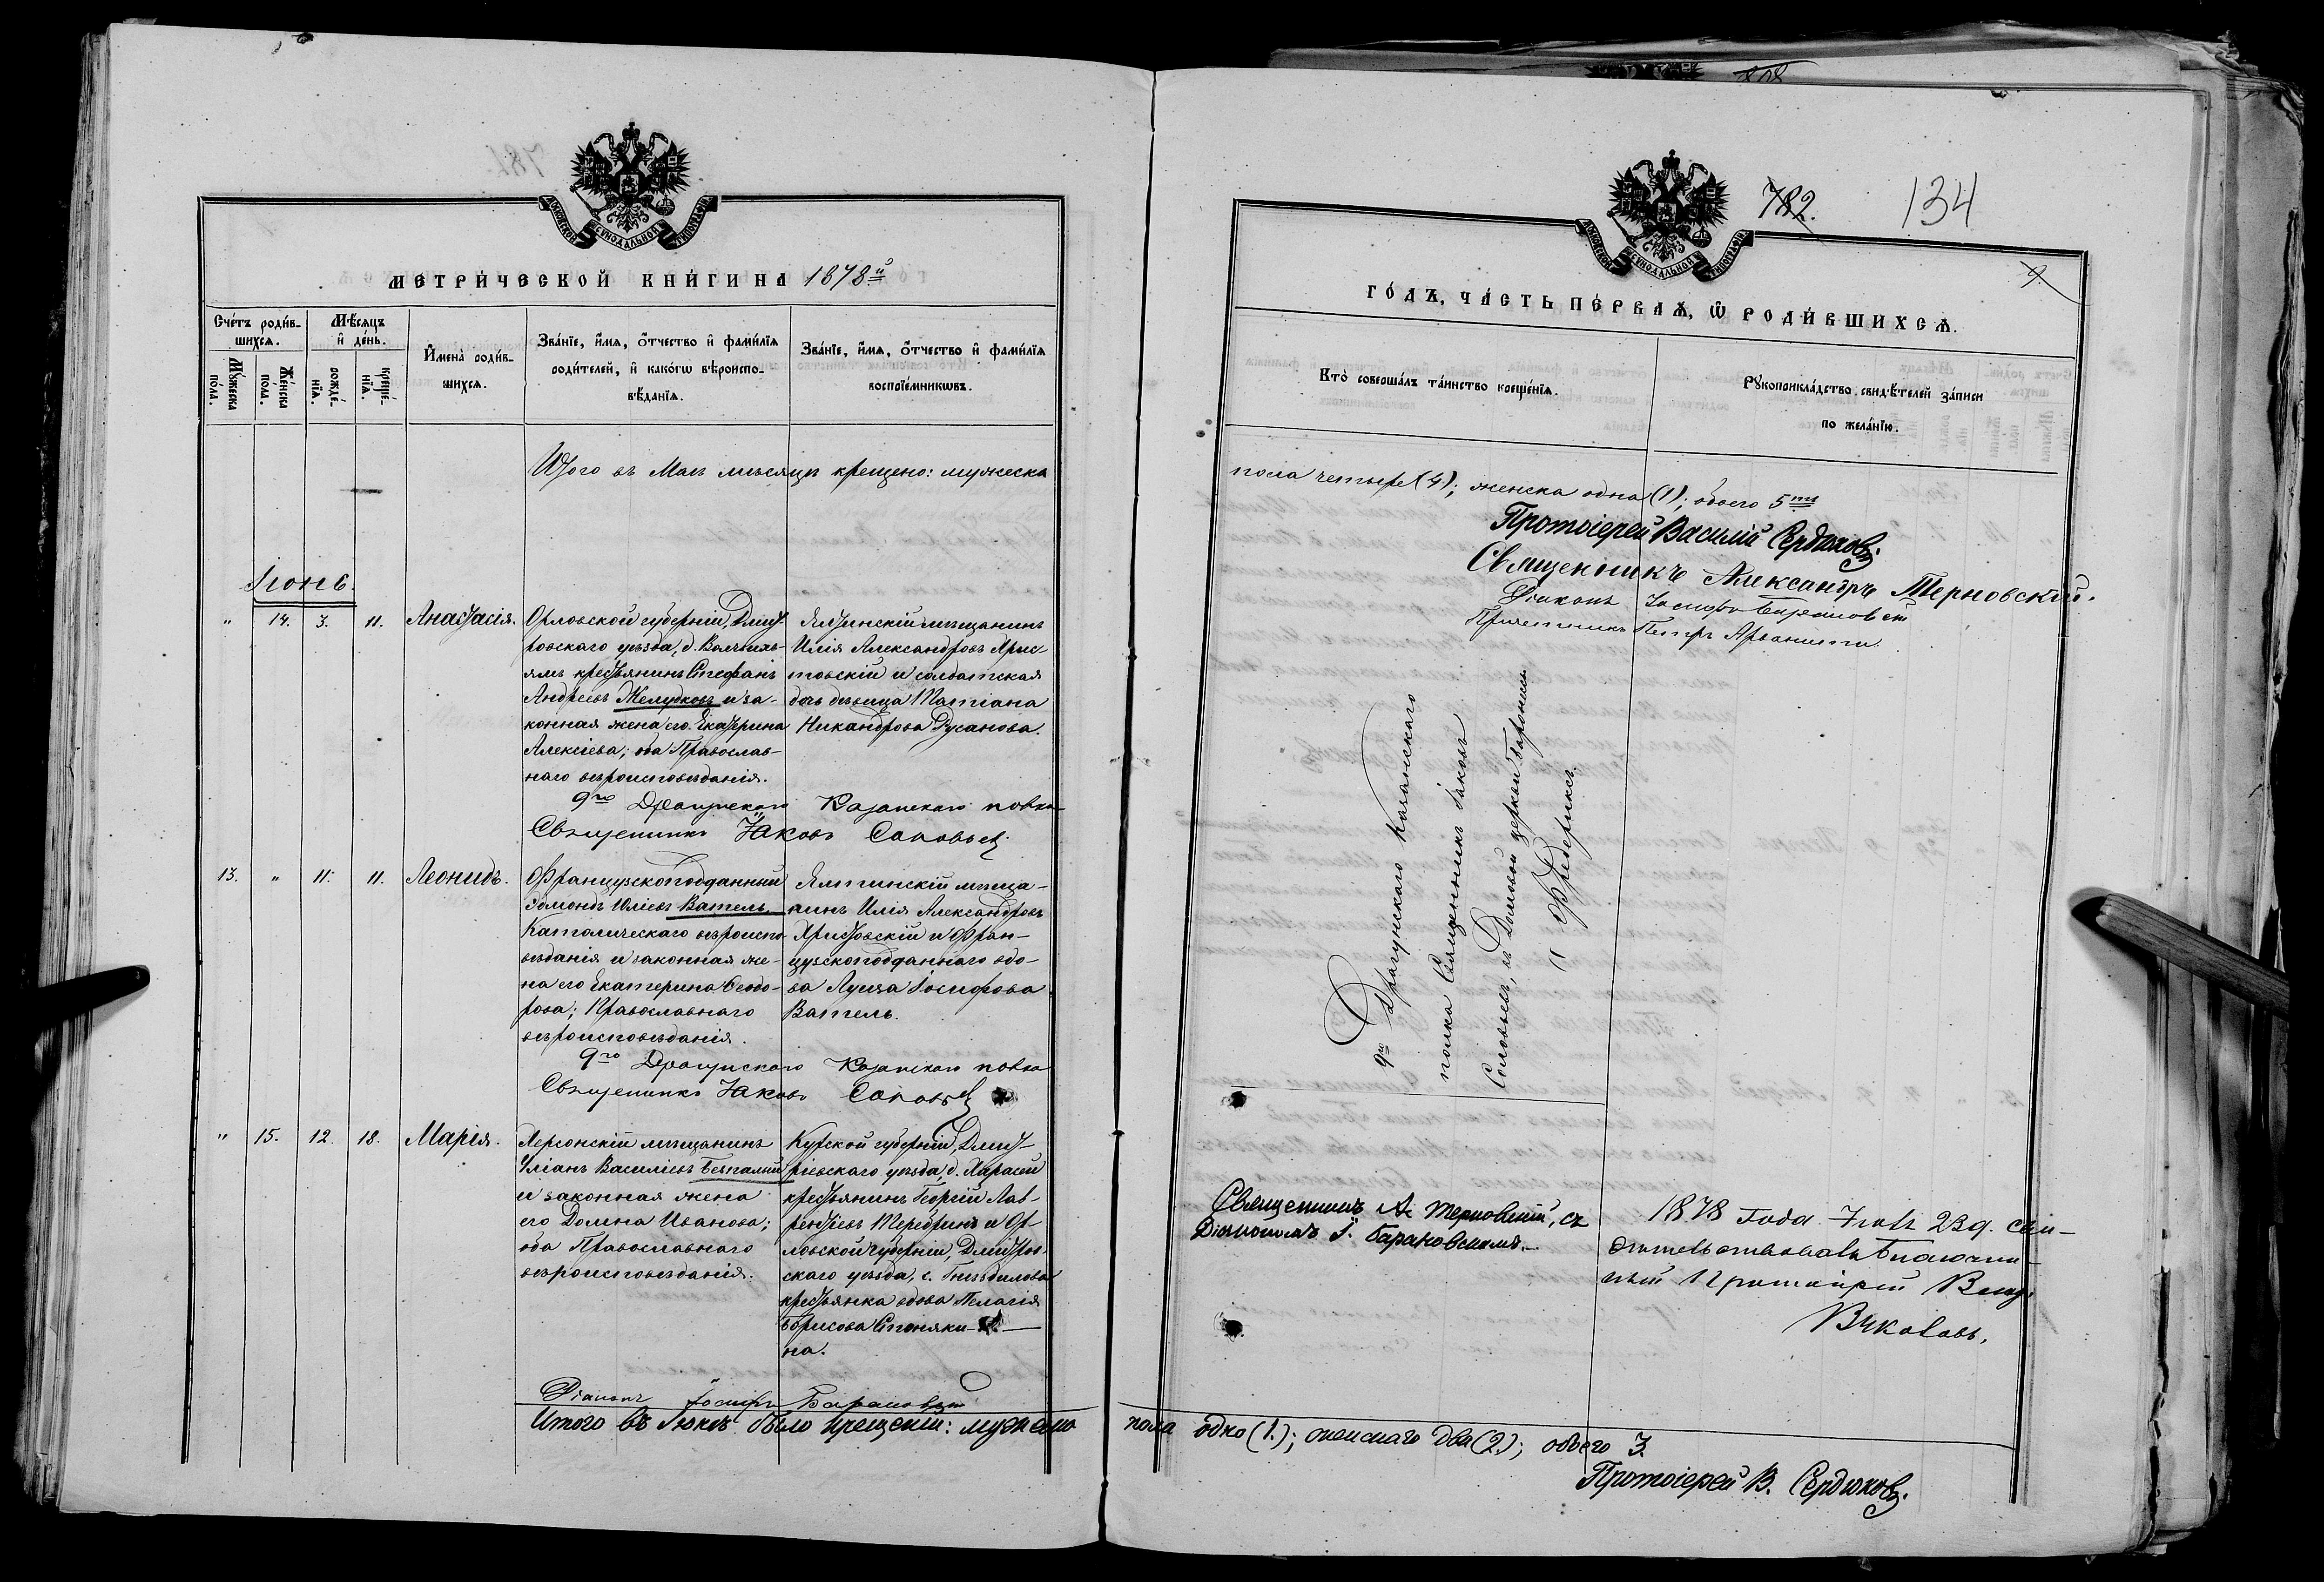 МОСКОВСКОЙ СѴНОДАЛЬНОЙ ТИПОГРАФІИ
МЕТРИ́ЧЕСКОЙ КНИ́ГИ НА 1878й
Сче́тъ роди́в-
шихсѧ.
Мѣ́сѧцъ
и де́нь.
Му́жеска
по́ла.
Же́нска
по́ла.
рожде́-
нїѧ.
креще́-
нїѧ.
Имена̀ роди́в-
шихсѧ.
Зва́нїе, и́мѧ, ѻ́тчество и фами́лїѧ
роди́телей, и како́гѡ вѣроиспо-
вѣ́данїѧ.
Зва́нїе, и́мѧ, ѻ́тчество и фами́лїѧ
воспрїе́мникѡвъ.
Итого въ Маѣ мѣсяцѣ крещено: мужеска
Іюнь.
" 14. 3. 11. Анастасія.
Орловской губерніи, Дмит-
ровскаго уѣзда, д.
крестьянинъ Стефанъ
Андреевъ Желудковъ и за-
конная жена его Екатерина
Алексіева; оба Православ-
наго вѣроисповѣданія.
Ялтинскій мѣщанинъ
Илія Александровъ Хрис-
товскій и солдатская
дочь дѣвица Татіана
Никандрова Русанова.
9го Драгунскаго Казанскаго полка
Священникъ Іаковъ Соловьев
13. " 11. 11. Леонидъ.
Французскоподданный
Эдмондъ Юліевъ Ватель
Католическаго вѣроиспо-
вѣданія и законная же-
на его Екатерина Ѳеодо-
рова; Православнаго
вѣроисповѣданія.
Ялтинскій мѣща-
нинъ Илія Александровъ
Христовскій и Фран-
цузскоподданнаго вдо-
ва Луиза Іосифова
Ватель.
9го Драгунскаго Казанскаго полка
Священникъ Іаковъ Соловьев
" 15. 12. 18. Марія.
Херсонскій мѣщанинъ
Уліанъ Василіевъ Безпалый
и законная жена
его Домна Иванова;
оба Православнаго
вѣроисповѣданія.
Курской губерніи, Дмит-
ріевскаго уѣзда, д.
крестьянинъ Георгій Лав-
рентіевъ и Ор-
ловской губерніи, Дмитров-
скаго уѣзда, с. Гнѣздилова
крестьянка вдова Пелагія
Борисова Стоняки-
на.
Діаконъ Іосифъ Барановскій
Итого въ Іюнѣ было крещеній: мужеска
782. 134
9.
МОСКОВСКОЙ СѴНОДАЛЬНОЙ ТИПОГРАФІИ
ГО́ДЪ, ЧА́СТЬ ПЕ́РВАѦ, Ѡ РОДИ́ВШИХСѦ.
Кто̀ соверша́лъ та́инство креще́нїѧ.
Рꙋкоприкла́дство свидѣ́телей за́писи
по жела́нїю.
пола четыре (4); женска одна (1); обоего 5ть
Протоіерей Василій Сердюковъ
Священникъ Александръ Терновскій.
Діаконъ Іосифъ Барановскій
Причетникъ Петръ
9го Драгунскаго Казанскаго
полка Священникъ Іаковъ
Соловьевъ, въ Домовой церкви Баронессы
" Фредериксъ.
Священникъ А. Терновскій, съ
Діакономъ І. Барановскимъ.
1878 года 23 д. сви-
дѣтельствовалъ Благочин-
ный Протоіерей
пола одно (1.); женскаго два (2.); обоего 3.
Протоіерей В. Сердюковъ.